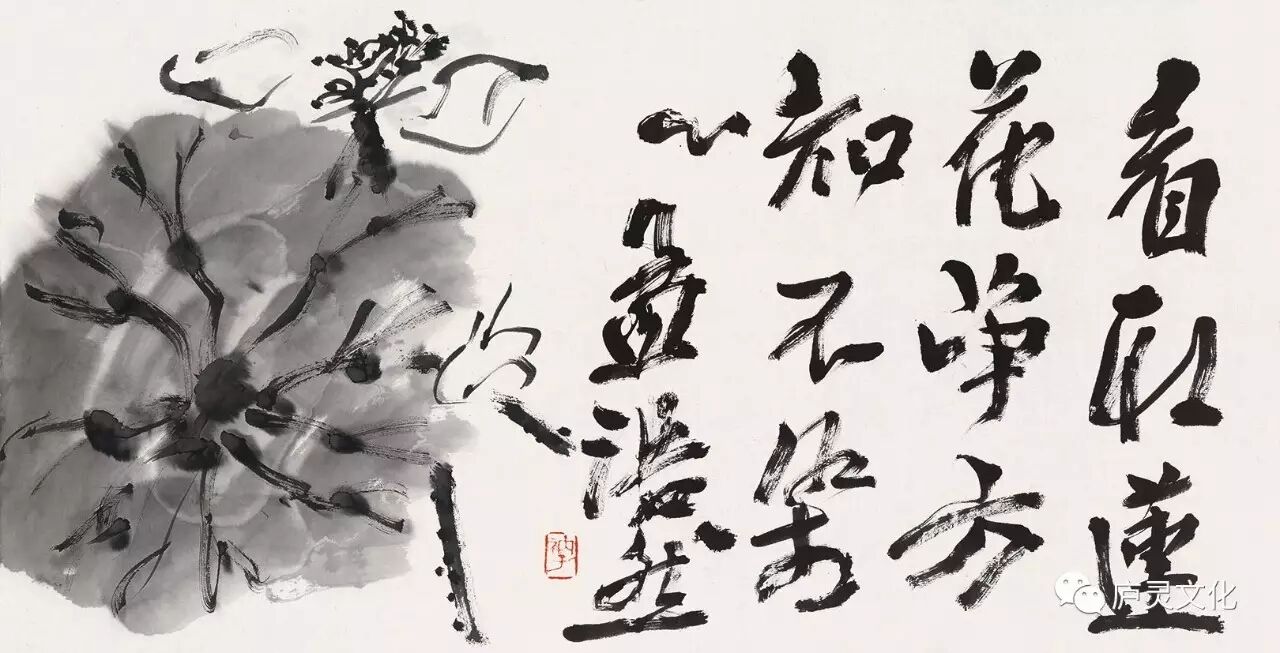 看取蓮
花净方
知不染
心 孟浩然
庐灵文化